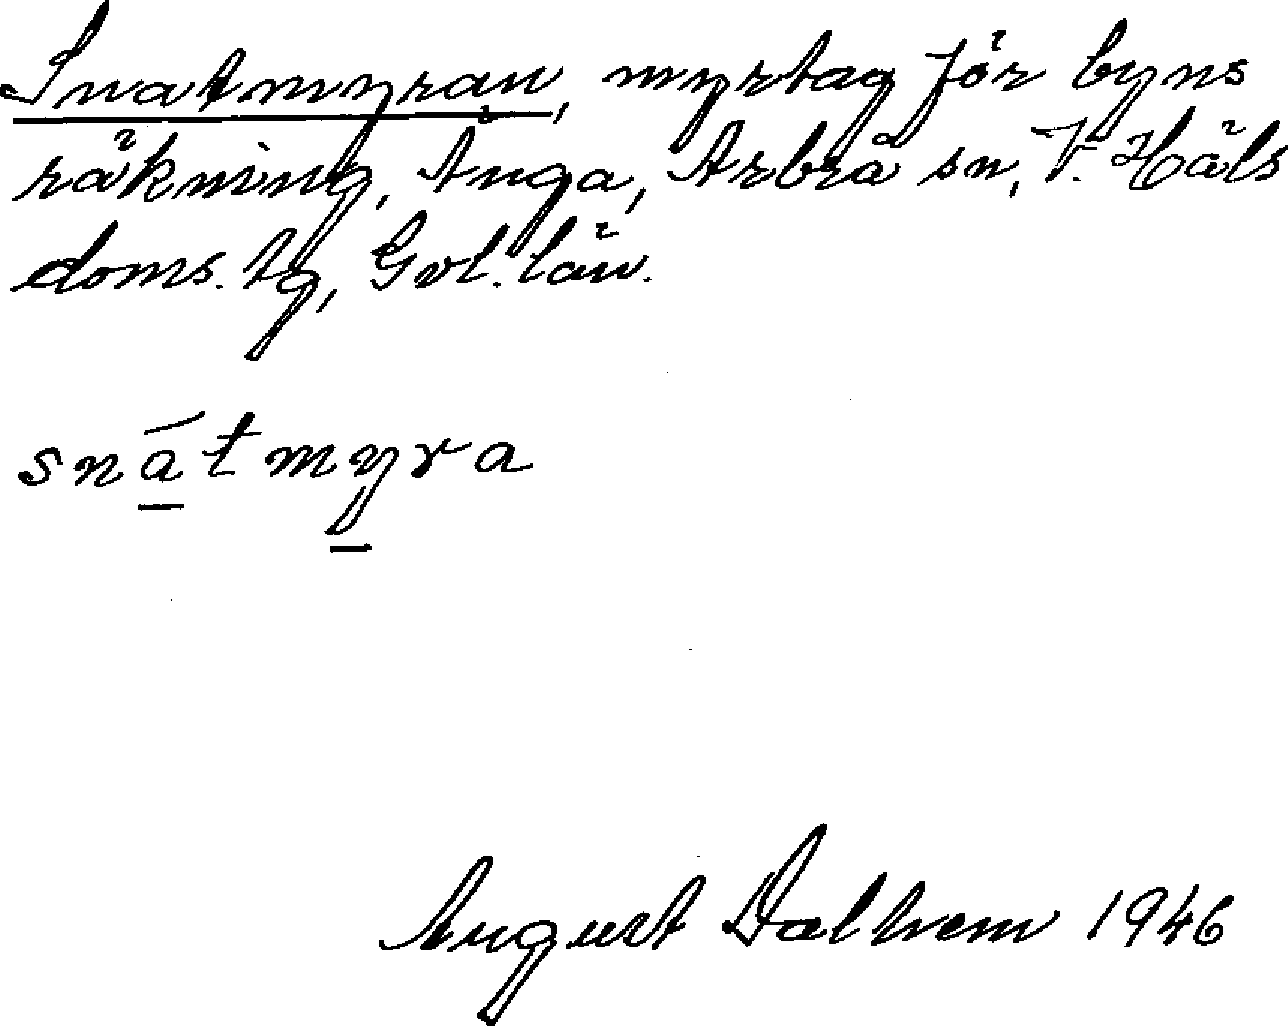 Snatmyran, myrtag för byns
räkning, Änga, Arbrå sn, V. Häls
doms. tg, Gvl. län.
snátmyra
August Dalhem 1946